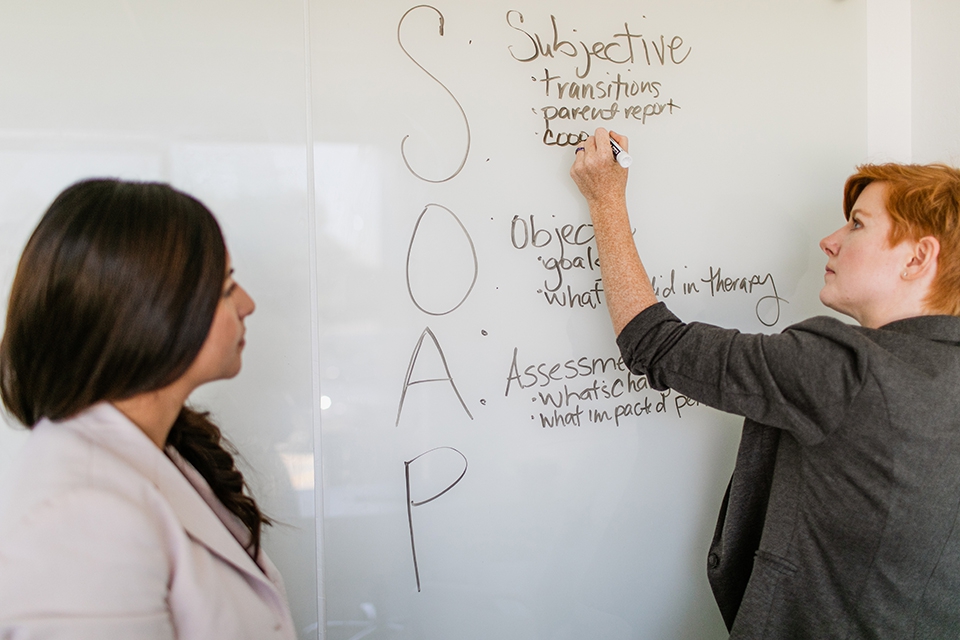 S : Subjective
· transitions
· parent report
· coo
O : Objec
· goals
· what id in therapy
A : Assessme
· what's cha
· what impact'd pe
P